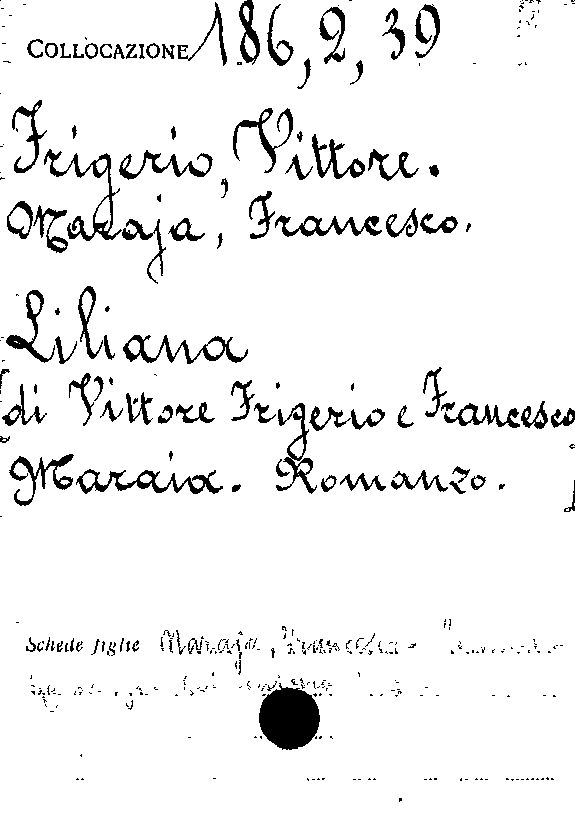 COLLOCAZIONE 186, 2, 39
Frigerio, Vittore.
Maraja, Francesco.
Liliana
di Vittore Frigerio e Francesco
Maraia. Romanzo.
Schede figlie Maraja, Francesco -